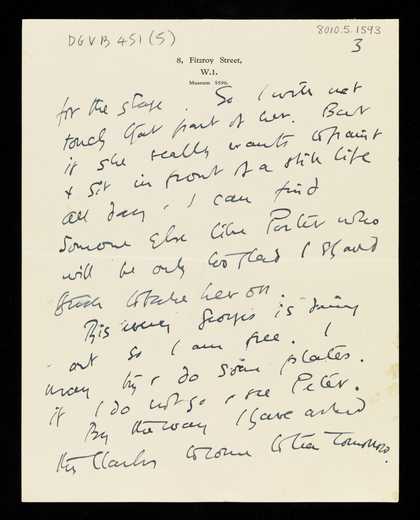 DGVB 451 (5)
8010.5.1593
3
8, Fitzroy Street,
W.1.
Museum 5590.
for the stage. So I will not
touch that part of her. But
if she really wants to paint
& sit in front of a still life
all day, I can find
someone else like Porter who
will be only too glad I should
think to take her on.
This evening Georges is dining
out so I am free. I
may try & do some plates.
if I do not go & see Peter.
By the way I have asked
the Clarks to come to tea tomorrow.